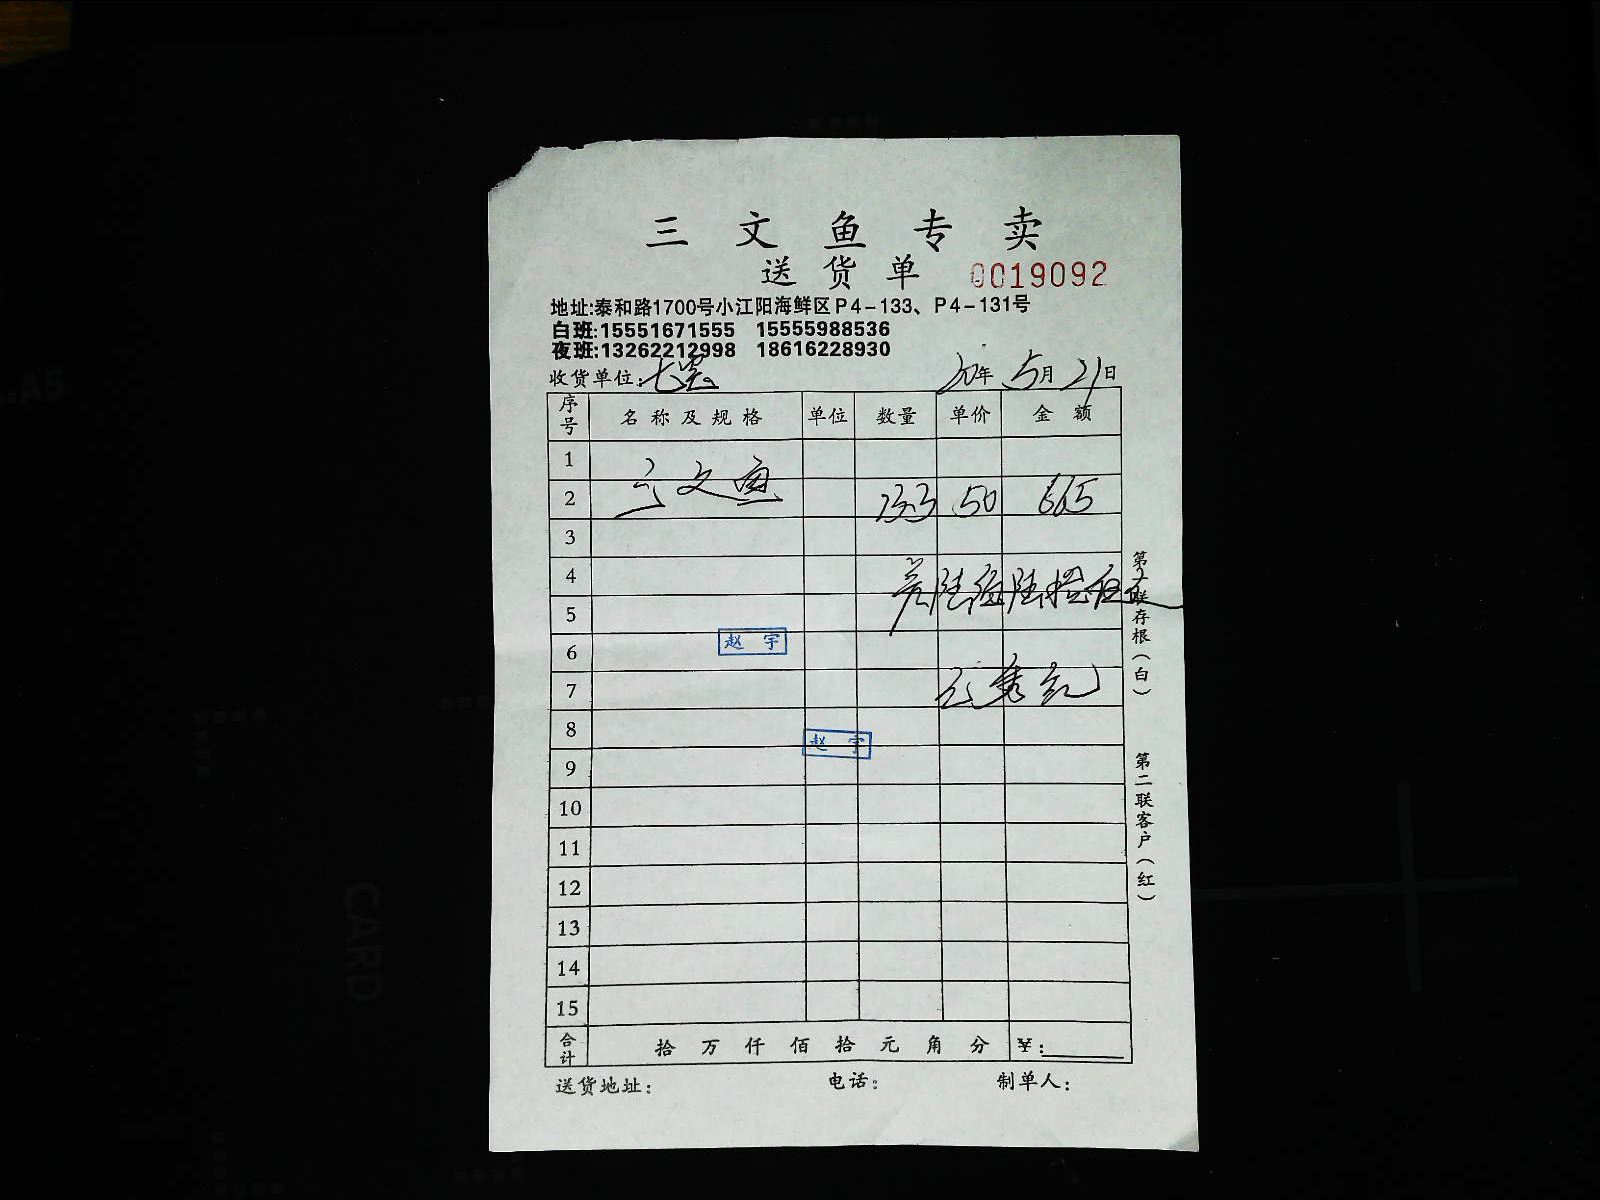 三文鱼专卖
送货单 0019092
地址:泰和路1700号小江阳海鲜区P4-133、P4-131号
白班:15551671555 15555988536
夜班:13262212998 18616228930
收货单位: 七 20年 5月 21日
序号 名称及规格 单位 数量 单价 金额
1
2 三文鱼 13.3 50 665
3
4
陆佰陆拾伍
5
6 赵宇
7
8
赵宇
9
10
11
12
13
14
15
合计 拾万仟佰拾元角分 ¥:
送货地址: 电话: 制单人:
第一联存根(白)
第二联客户(红)
CARD
A5